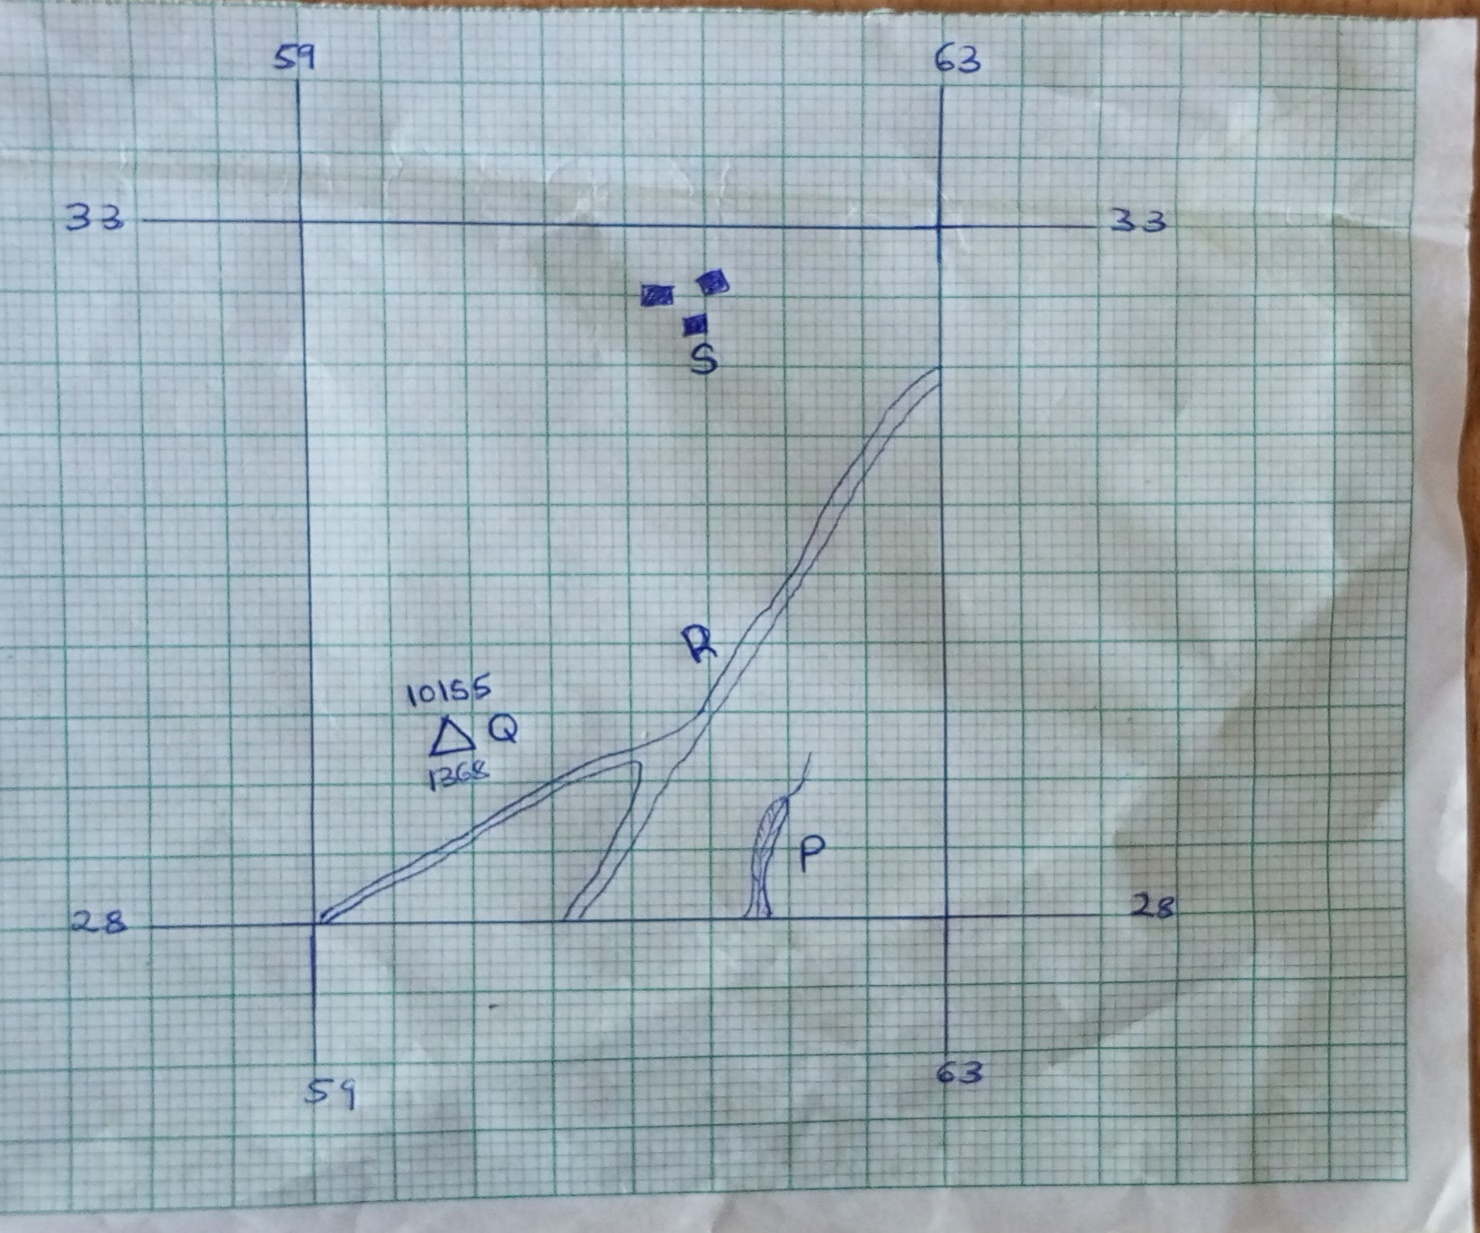 59 63
33 33
S
R
10155
Q
1368
P
28 28
59 63